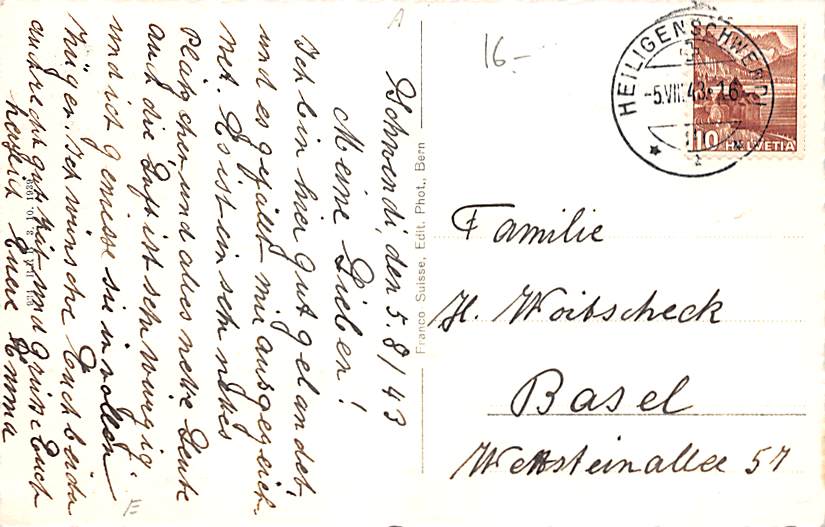 Schwendi, den 5.8/43
Meine Lieben!
Ich bin hier gut gelandet,
und es gefällt mir ausgezeich-
net. Es ist ein sehr nettes
Plätzchen, und alles nette Leute
auch die Luft ist sehr würzig
und ich geniesse sie in vollen
Zügen. Ich wünsche Euch beiden
auch recht gute Zeit und grüsse Euch
herzlich Eure Emma
Franco Suisse, Edit. Phot., Bern
A
16.–
E
HEILIGENSCHWENDI
-5.VIII.43-16-
10 HELVETIA
Familie
H. Woitscheck
Basel
Wettsteinallee 57